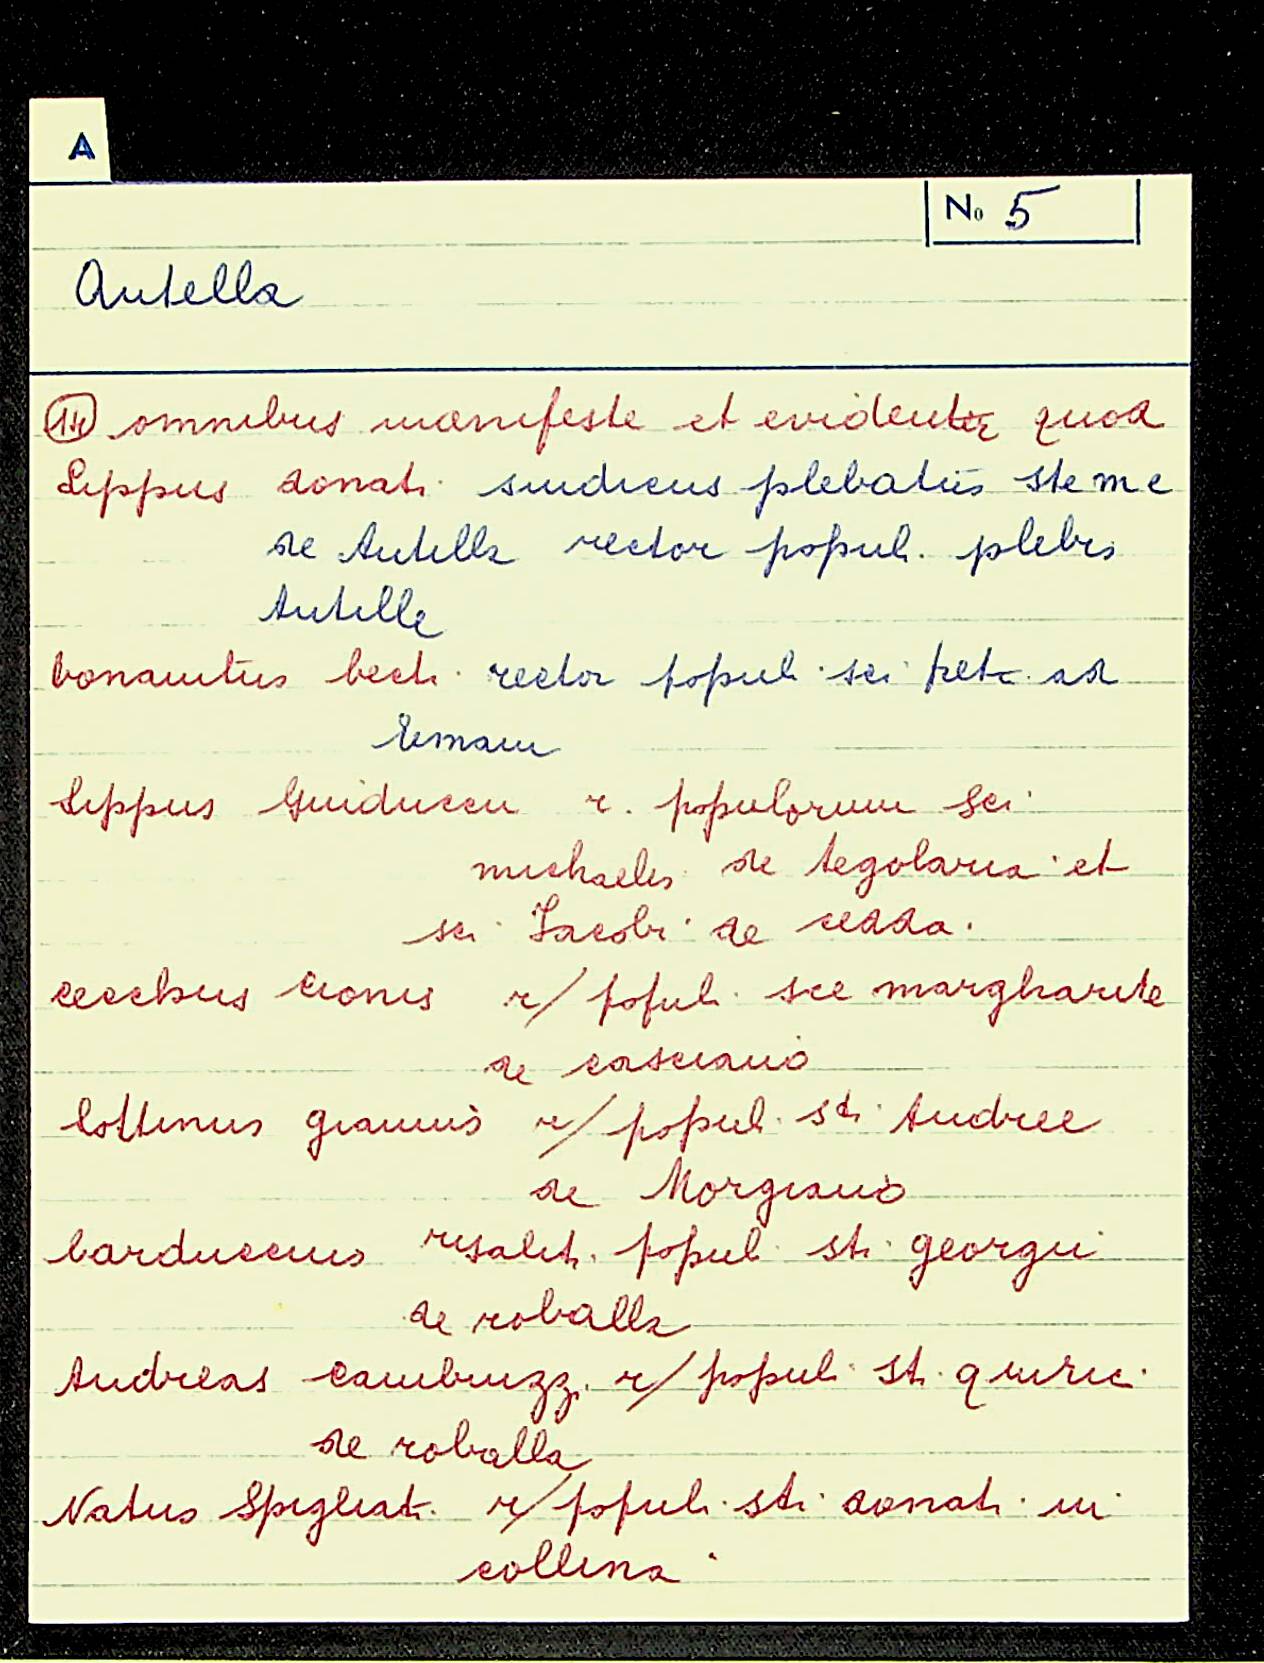 A
No 5
Antella
14 omnibus manifeste et evidenter quod
Lippus donati sindicus plebatus ste m e
de Antella rector popul. plebis
Antelle
bonavitus bech. rector popul. sci petr. ad
Emam
Lippus Guiduccii r. populorum sci
michaelis de tegolaria et
sci Jacobi de cedda.
cecchus cionis r/ popul. sce margharite
de casciano
lottinus gianni r/ popul. sti Andree
de Morgiano
barduccius risalit. popul. sti georgii
de roballa
Andreas cambuzz. r/ popul. sti quiric.
de roballa
Natus Spigliat. r/ popul. sti donati in
collina